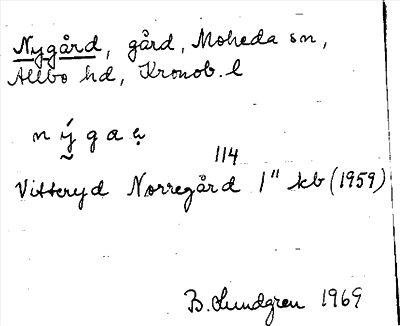 Nygård, gård, Moheda sn,
Allbo hd, Kronob. l
n ý g a ạ
114
Vitteryd Norregård 1" kb (1959)
B. Lundgren 1969